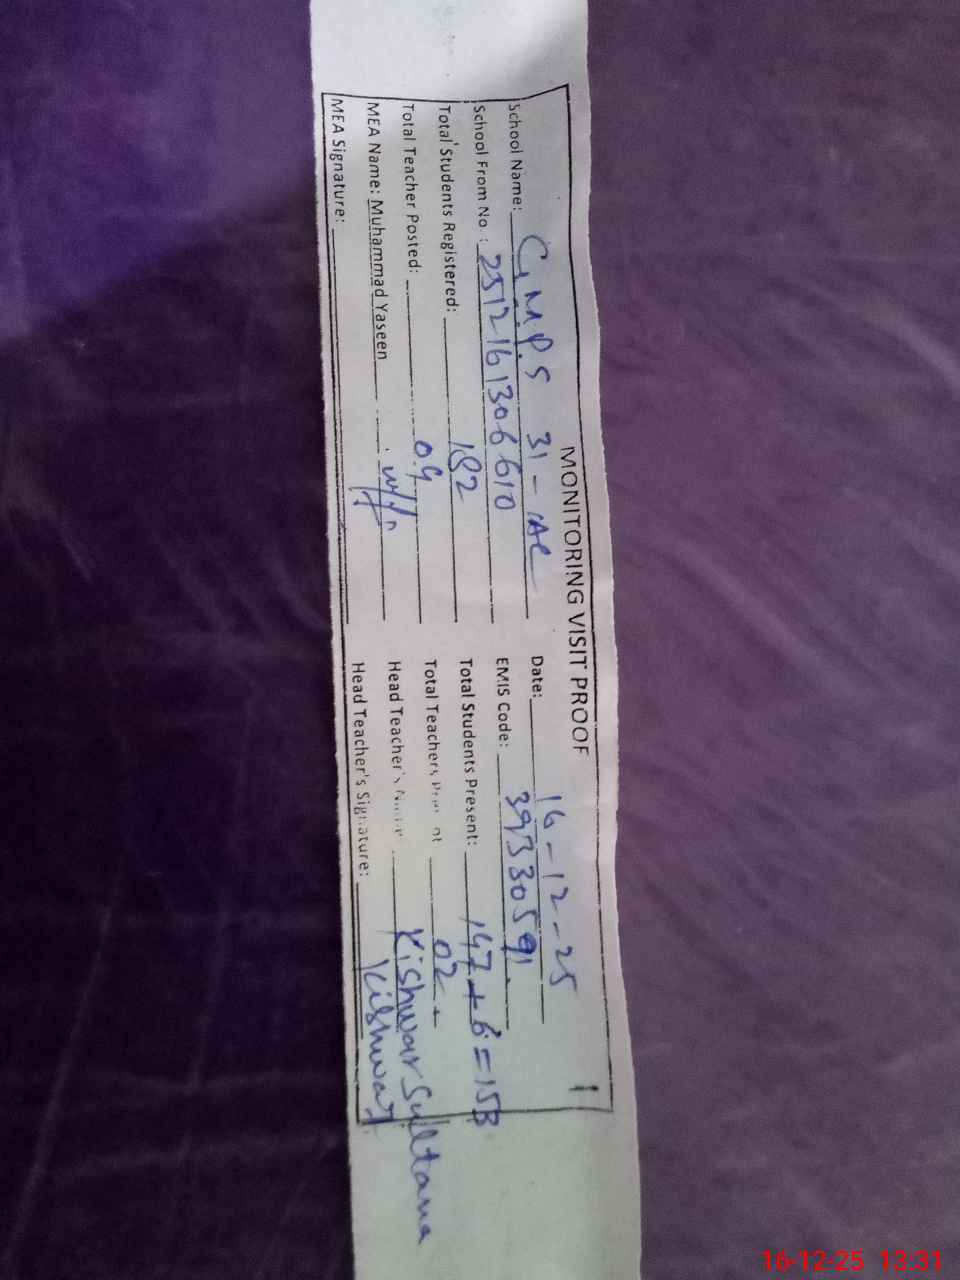 MONITORING VISIT PROOF
School Name: G.M.P.S 31-
Date: 16-12-25
School From No : 2512161306610
EMIS Code: 39330591
Total Students Registered: 182
Total Students Present: 147+6=153
Total Teacher Posted: 04
Total Teachers 02
MEA Name: Muhammad Yaseen
Head Teacher's Kishwar Sultana
MEA Signature:
Head Teacher's Signature: Kishwar
16-12-25 13:31